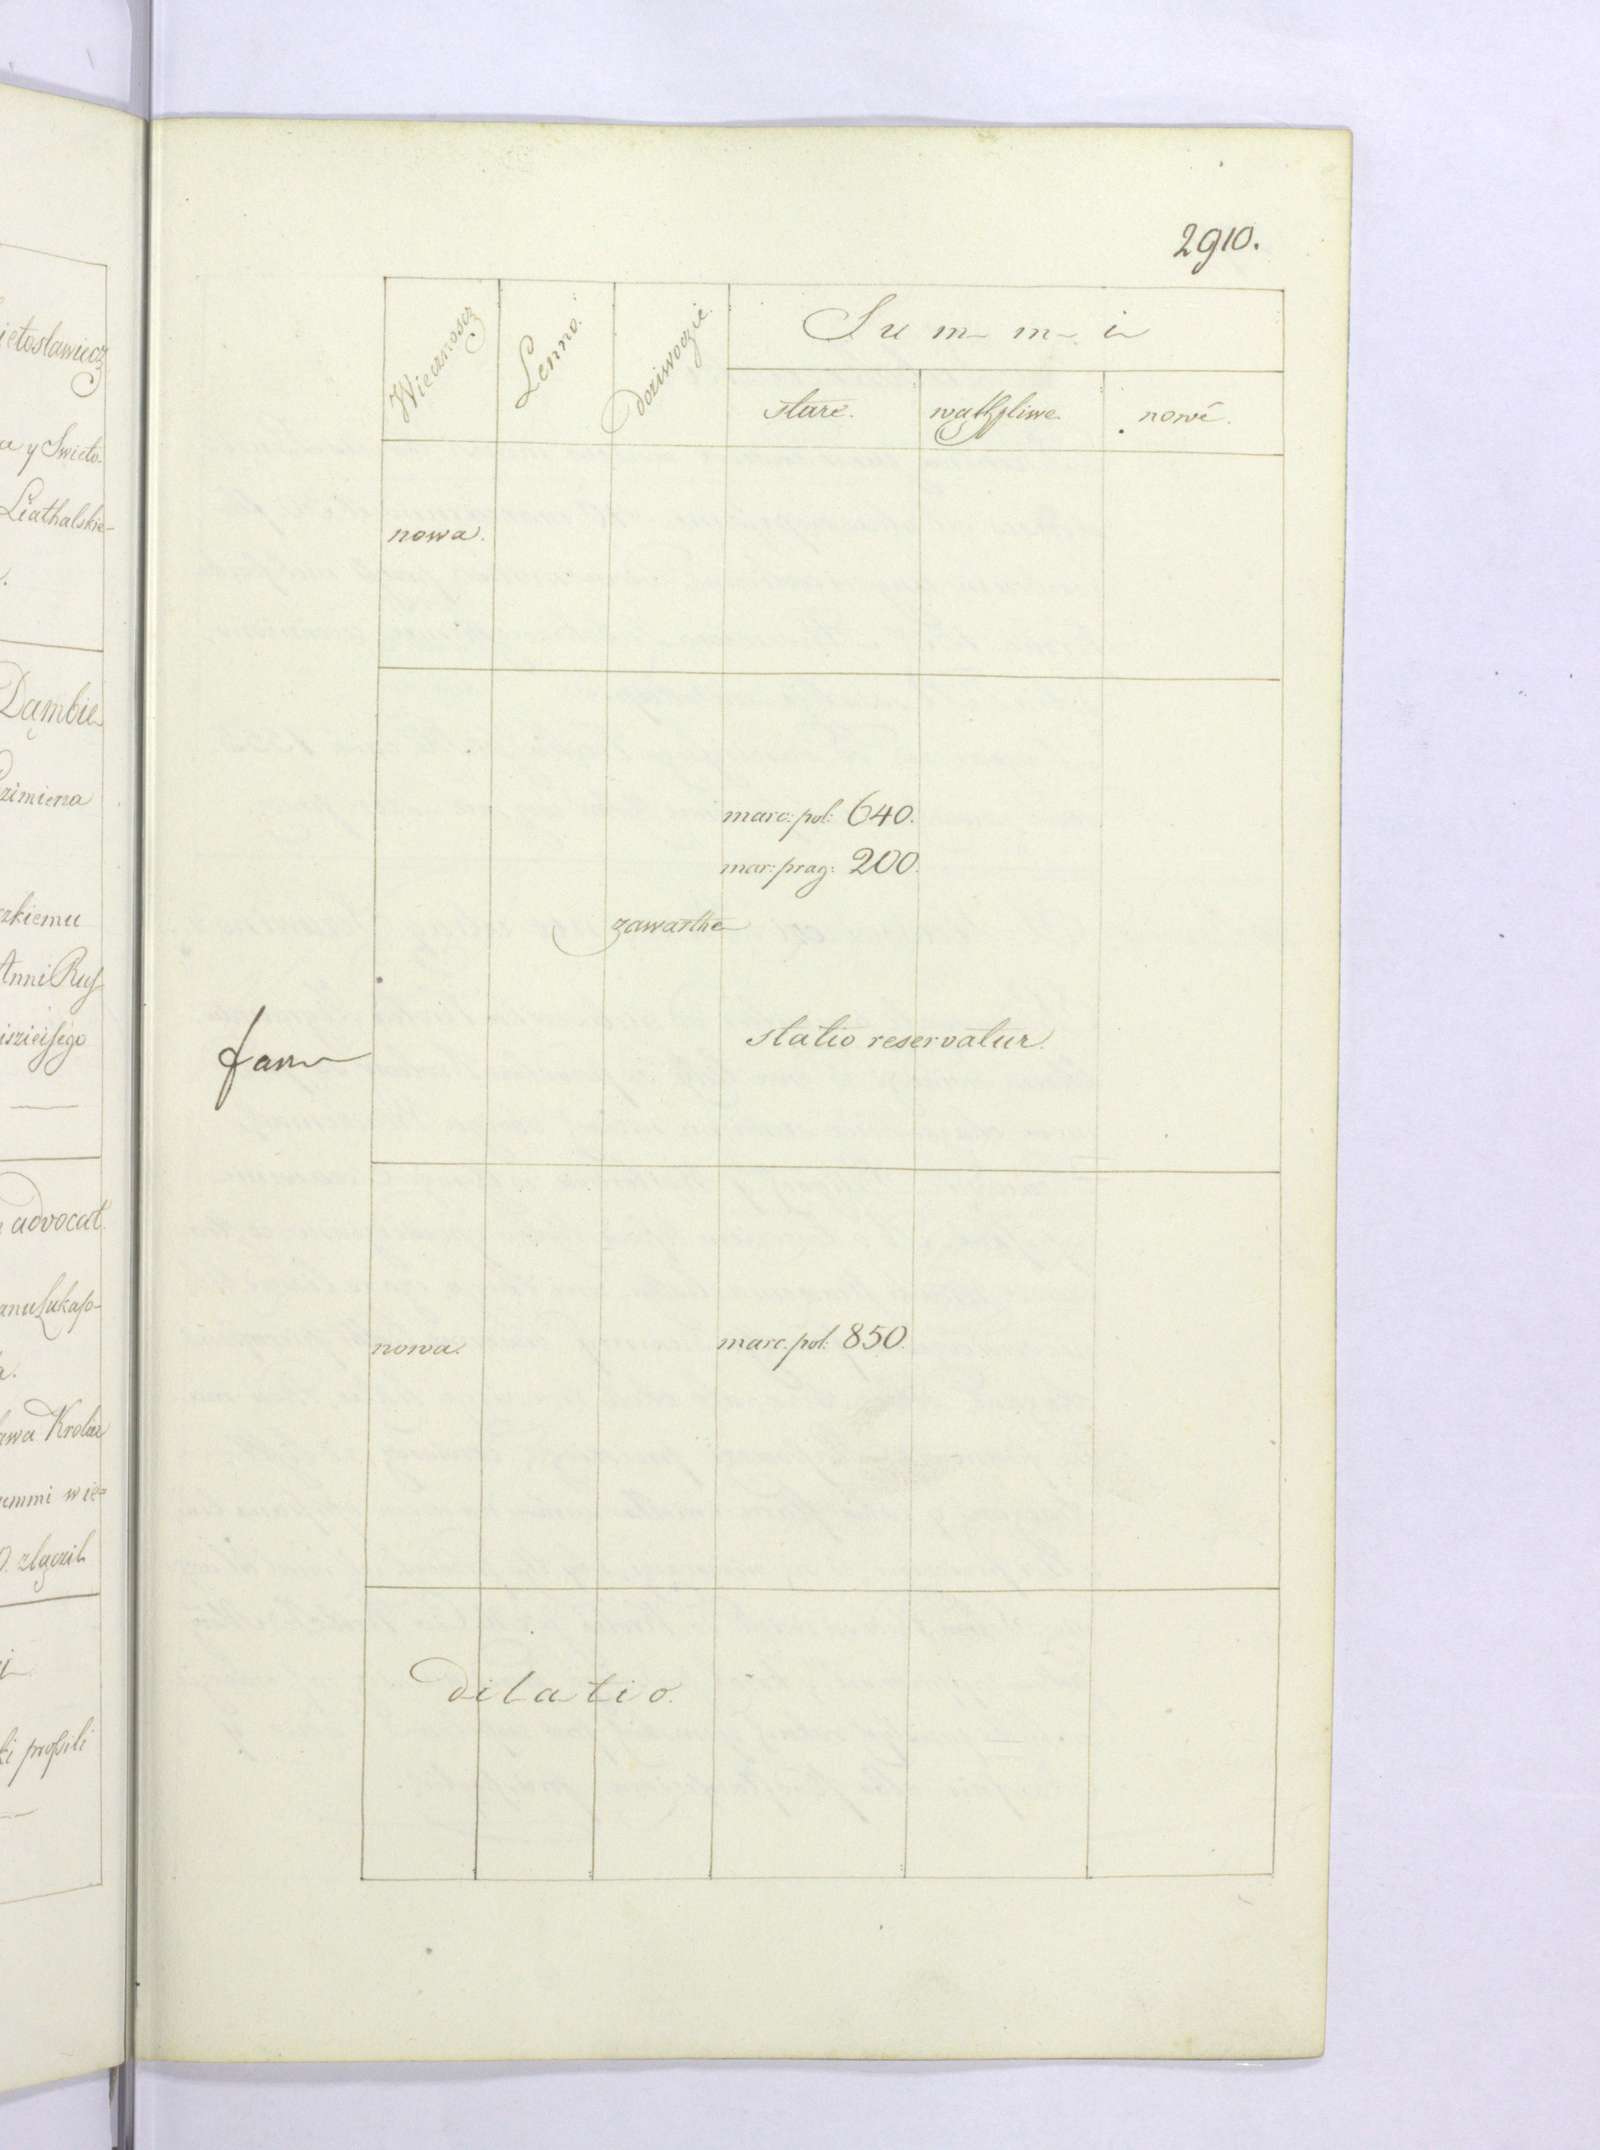 ietosławiecz
a y Swięto-
Liathalskie-
Dąmbie
zimierza
czkiemu
Anni Rus
iszieisego
advocat
anu Lukaso-
awa Krolia
ummi wie=
O. zlączil
ki prosili
2910.
Wiecznoscz
Lenno.
Doziwoczie.
Summi
stare.
wąthpliwe
nowé.
nowa.
marc: pol: 640.
mar: prag: 200.
zawarthe
statio reservatur.
nowa.
marc. pol: 850.
Dilatio.